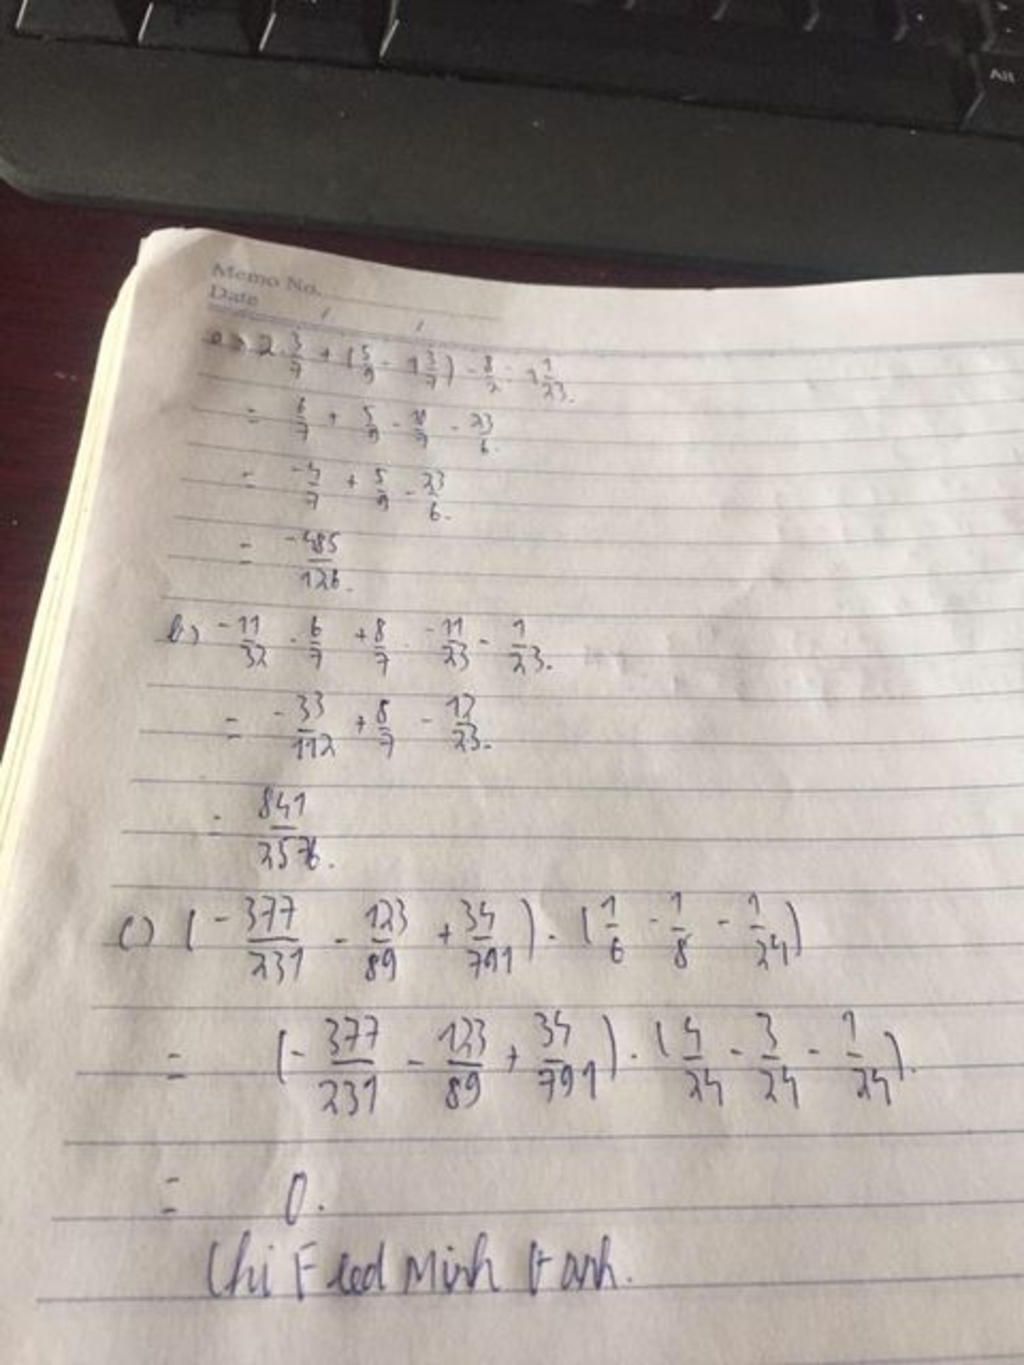 Alt
Memo No.
Date / /
a) 2 . 3/7 + (5/9 - 1 3/7) - 8/2 : 1 1/23.
= 6/7 + 5/9 - 10/7 - 23/6.
= -4/7 + 5/9 - 23/6.
= -485/126.
b) -11/32 . 6/7 + 8/7 . -11/23 - 1/23.
= -33/112 + 8/7 - 12/23.
= 841/2576.
c) (-377/231 - 123/89 + 34/791) . (1/6 - 1/8 - 1/24)
= (-377/231 - 123/89 + 34/791) . (4/24 - 3/24 - 1/24).
= 0.
Chi Fred Minh Hanh.